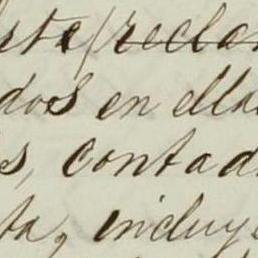 ste reclam
dos en ella
s, contad
ta, incluye